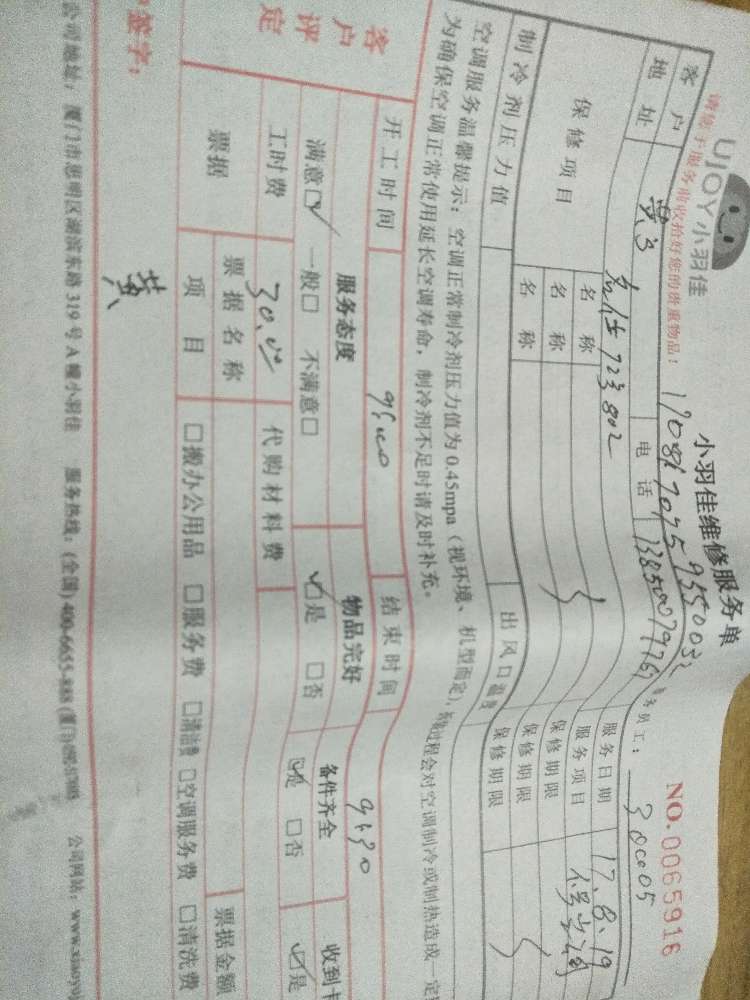 UJOY小羽佳
小羽佳维修服务单
NO.0065916
请您于服务前收拾好您的贵重物品!
客户 电话 13850079767 服务日期 17.8.19
地址 723 802 服务项目
保修项目 名称 保修期限
名称 保修期限
名称 保修期限
制冷剂压力值 出风口温度
空调服务温馨提示:空调正常制冷剂压力值为0.45mpa(视环境、机型而定),
为确保空调正常使用延长空调寿命,制冷剂不足时请及时补充。
开工时间 结束时间
客户评定 服务态度 物品完好 备件齐全 收到
满意☑ 一般□ 不满意□ ☑是 □否 ☑是 □否 ☑是
工时费 30.00 代购材料费
票据 票据名称 票据金额
项目 □搬办公用品 □服务费 □清洁费 □空调服务费 □清洗费
签字: 黄
公司地址:厦门市思明区湖滨东路319号A幢小羽佳 服务热线:(全国)400-6655-888 公司网站:www.xiaoyu